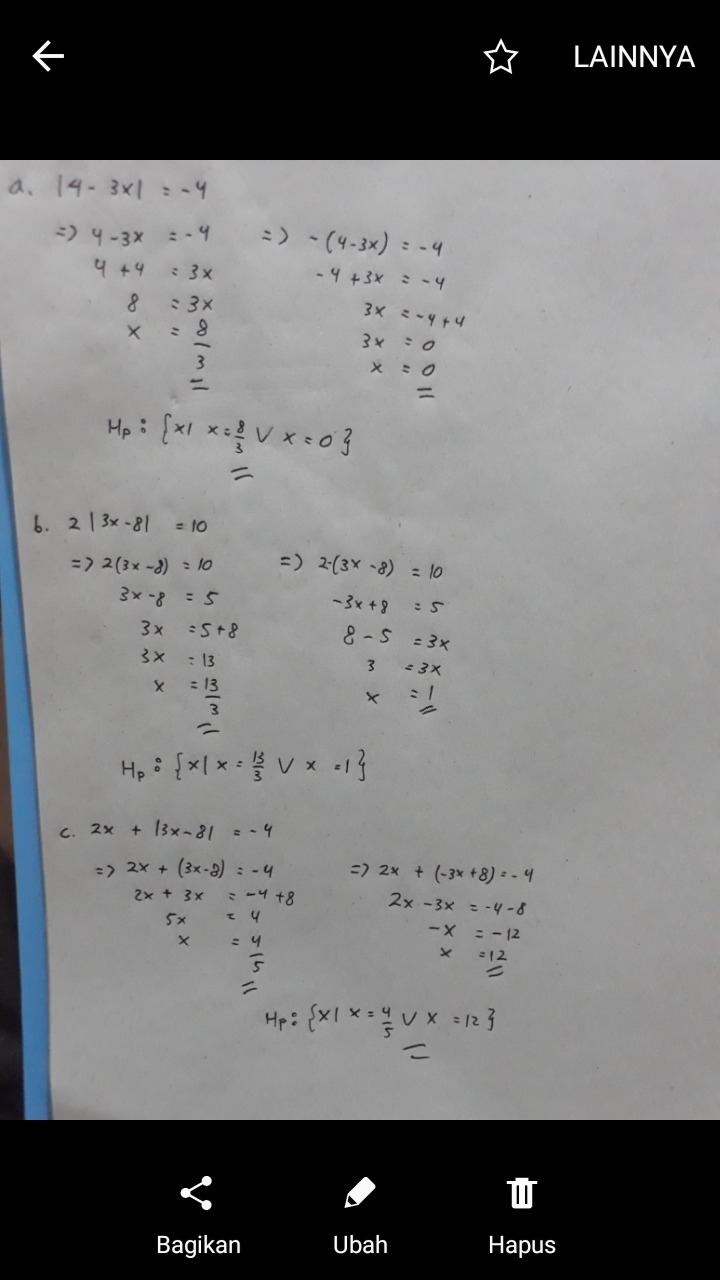 LAINNYA
a. |4 - 3x| = -4
=> 4-3x = -4 => -(4-3x) = -4
4 +4 = 3x -4 +3x = -4
8 = 3x 3x = -4+4
x = 8/3 3x = 0
x = 0
Hp : {x| x = 8/3 V x = 0}
b. 2 |3x -8| = 10
=> 2(3x -8) = 10 => 2-(3x -8) = 10
3x -8 = 5 -3x +8 = 5
3x = 5+8 8 - 5 = 3x
3x = 13 3 = 3x
x = 13/3 x = 1
Hp : {x| x = 13/3 V x = 1}
c. 2x + |3x-8| = -4
=> 2x + (3x-8) = -4 => 2x + (-3x +8) = -4
2x + 3x = -4 +8 2x -3x = -4 -8
5x = 4 -x = -12
x = 4/5 x = 12
Hp: {x| x = 4/5 V x = 12}
Bagikan Ubah Hapus